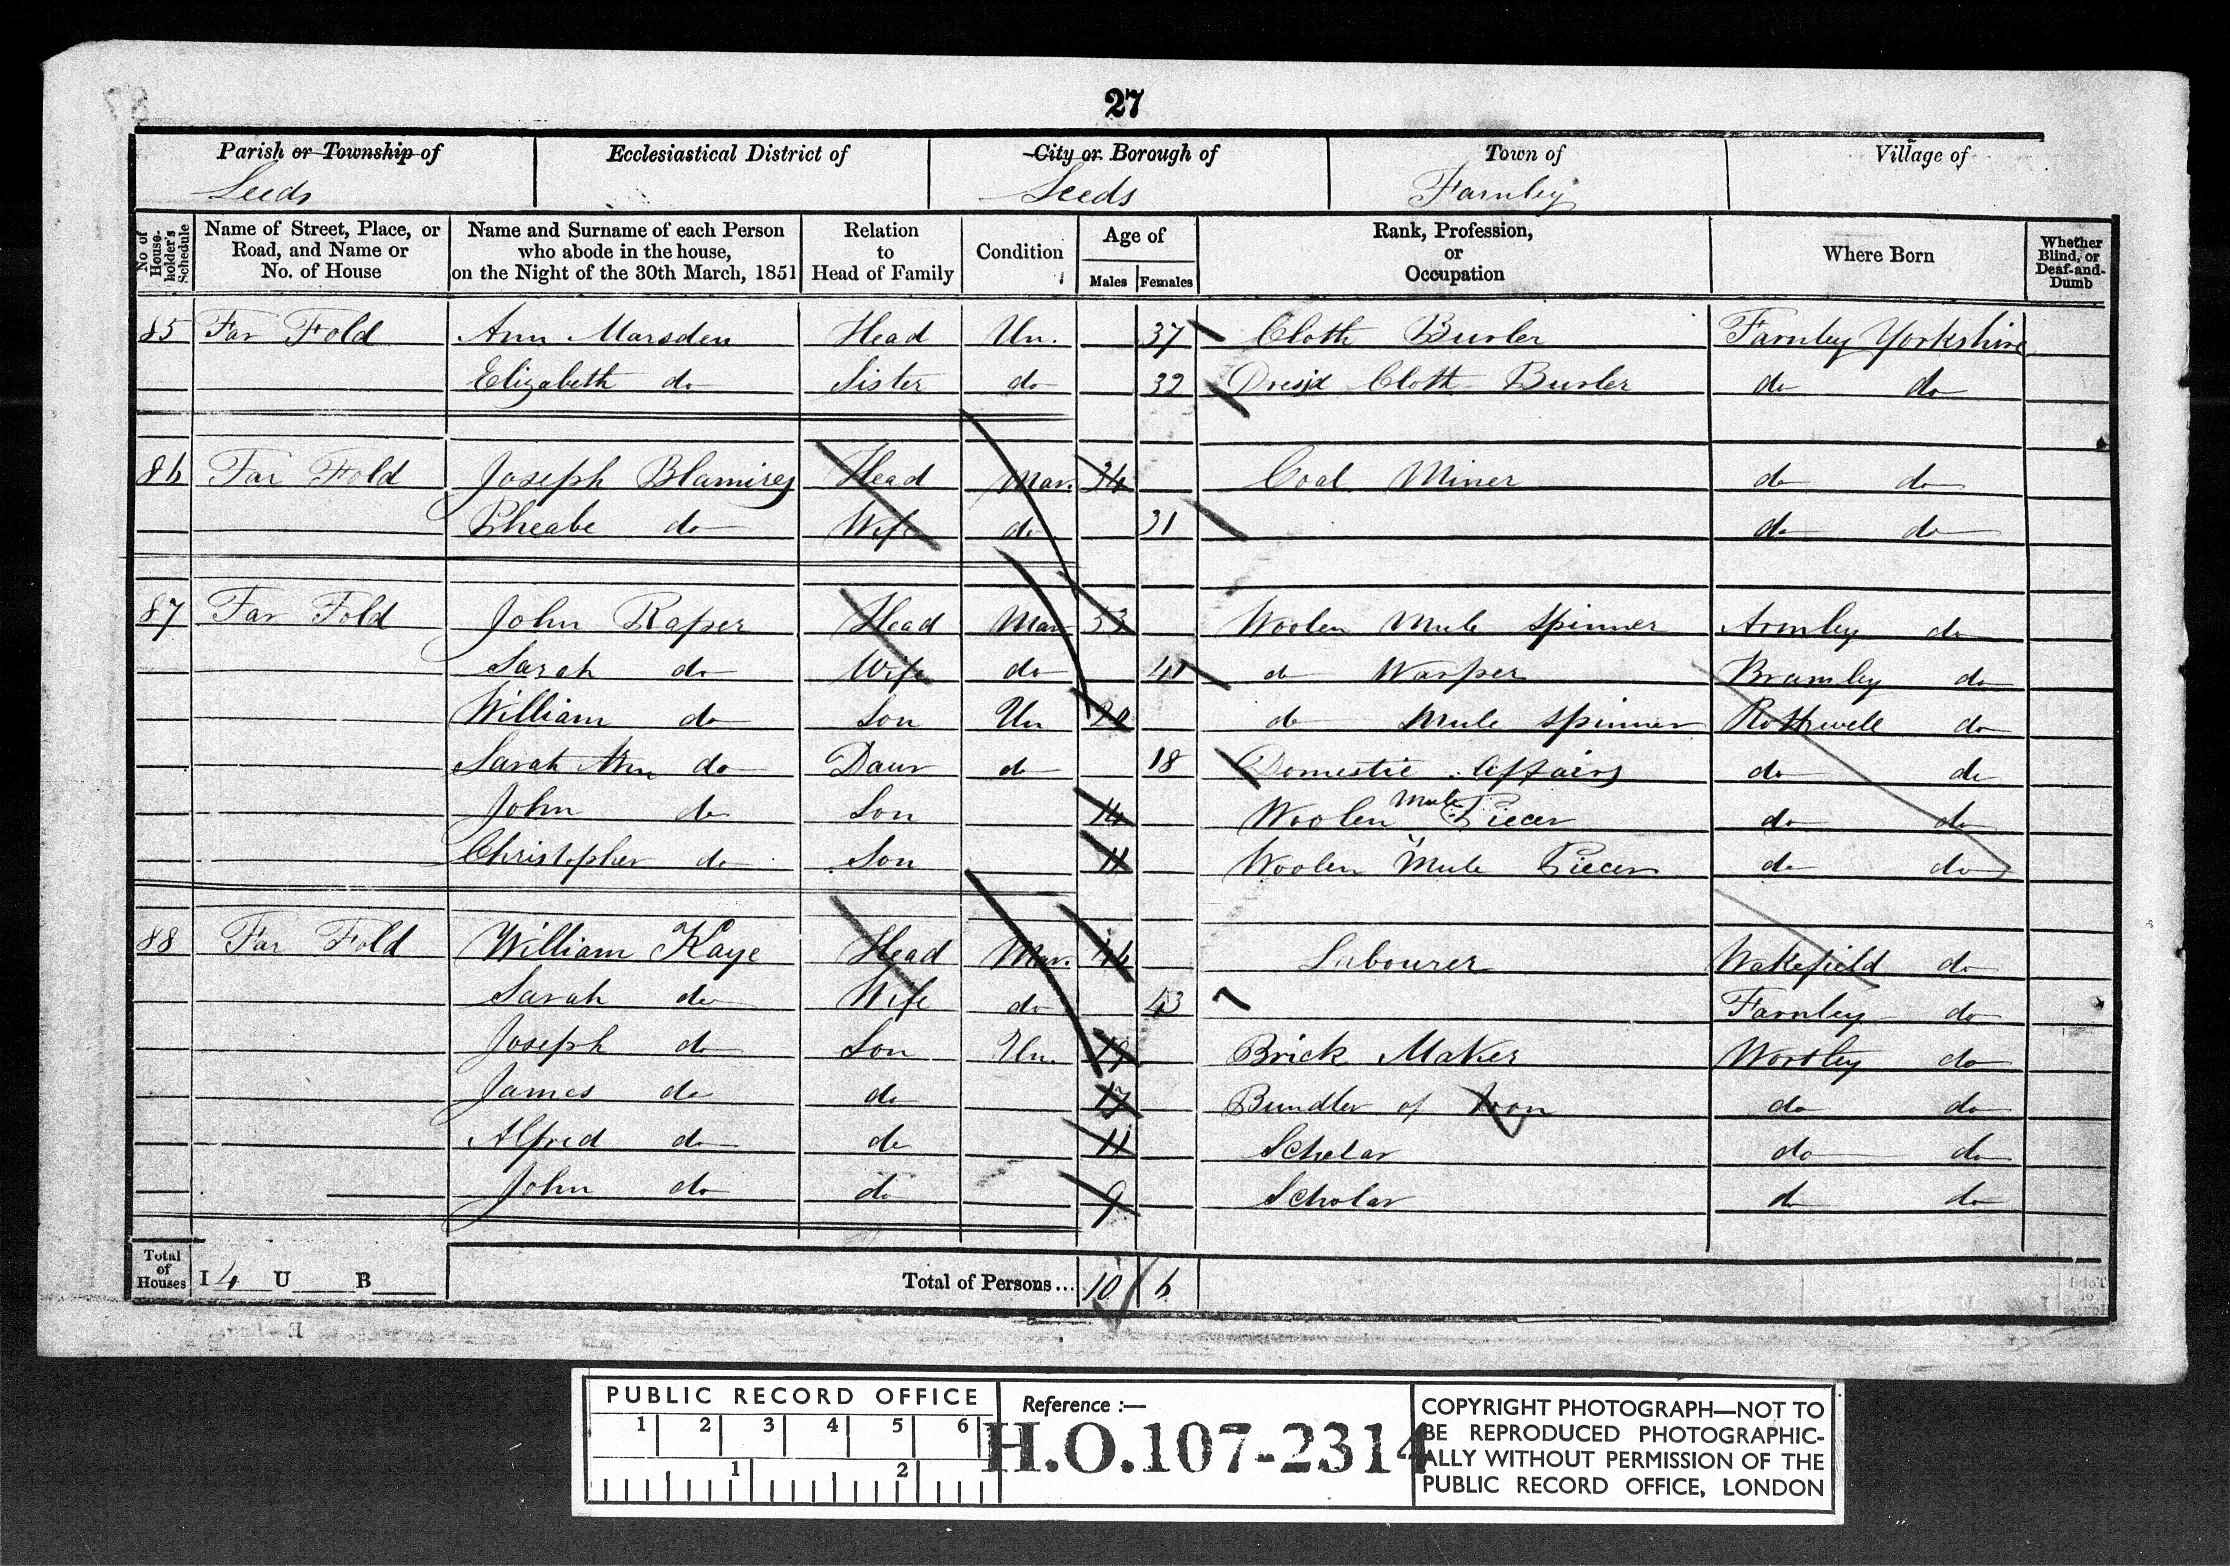 27
Parish or Township of Ecclesiastical District of City or Borough of Town of Village of
Leeds Leeds Farnley
No of House-holder's Schedule Name of Street, Place, or Road, and Name or No. of House Name and Surname of each Person who abode in the house, on the Night of the 30th March, 1851 Relation to Head of Family Condition Age of Males Females Rank, Profession, or Occupation Where Born Whether Blind, or Deaf-and-Dumb
85 Far Fold Ann Marsden Head Un. 37 Cloth Burler Farnley Yorkshire
Elizabeth do Sister do 32 Cloth Burler do do
86 Far Fold Joseph Blamires Head Mar. 34 Coal Miner do do
Pheabe do Wife do 31 do do
87 Far Fold John Raper Head Mar 53 Woolen Mule Spinner Armley do
Sarah do Wife do 41 do Warper Bramley do
William do Son Un do Mule Spinner Rothwell do
Sarah Ann do Daur do 18 Domestic Affairs do do
John do Son 14 Woolen Mule Piecer do do
Christopher do Son 11 Woolen Mule Piecer do do
88 Far Fold William Kaye Head Mar. Labourer Wakefield do
Sarah do Wife do 43 Farnley do
Joseph do Son Un. 19 Brick Maker Wortley do
James do do 17 Bundler of Iron do do
Alfred do do 11 Scholar do do
John do do 9 Scholar do do
Total of Houses I 4 U B Total of Persons... 10 6
PUBLIC RECORD OFFICE
1 2 3 4 5 6
1 2
Reference :—
H.O.107-2314
COPYRIGHT PHOTOGRAPH—NOT TO
BE REPRODUCED PHOTOGRAPHIC-
ALLY WITHOUT PERMISSION OF THE
PUBLIC RECORD OFFICE, LONDON